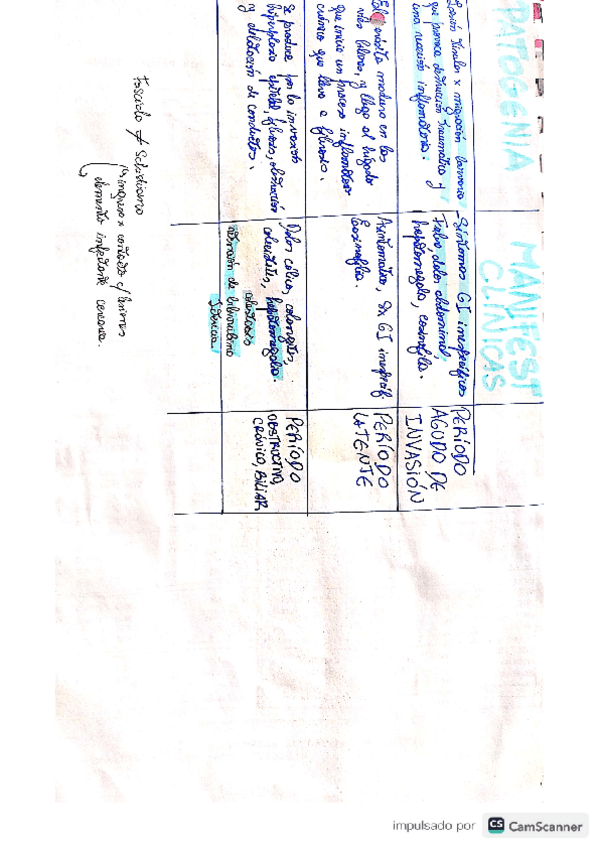 PATOGENIA
Lesión tisular x migración larvaria
que provoca destrucción traumática y
una reacción inflamatoria.
El parásito madura en las
vías biliares, y llega al hígado
que inicia un proceso inflamatorio
crónico que lleva a fibrosis.
Se produce por la invasión
hiperplasia epitelial, fibrosis, obstrucción
y dilatación de conductos.
MANIFEST
CLÍNICAS
Síntomas GI inespecíficos
Fiebre, dolor abdominal,
hepatomegalia, eosinofilia.
Asintomático, Sx GI inespecíf.
Eosinofilia.
Dolor cólico, colangitis,
colecistitis, hepatomegalia.
colestasis
elevación de bilirrubina
Ictericia
PERÍODO
AGUDO DE
INVASIÓN
PERÍODO
LATENTE
PERÍODO
OBSTRUCTIVO,
CRÓNICO, BILIAR
Fasciola ≠
ingresa x contacto c/
elemento infectante cercaria.
impulsado por CS CamScanner